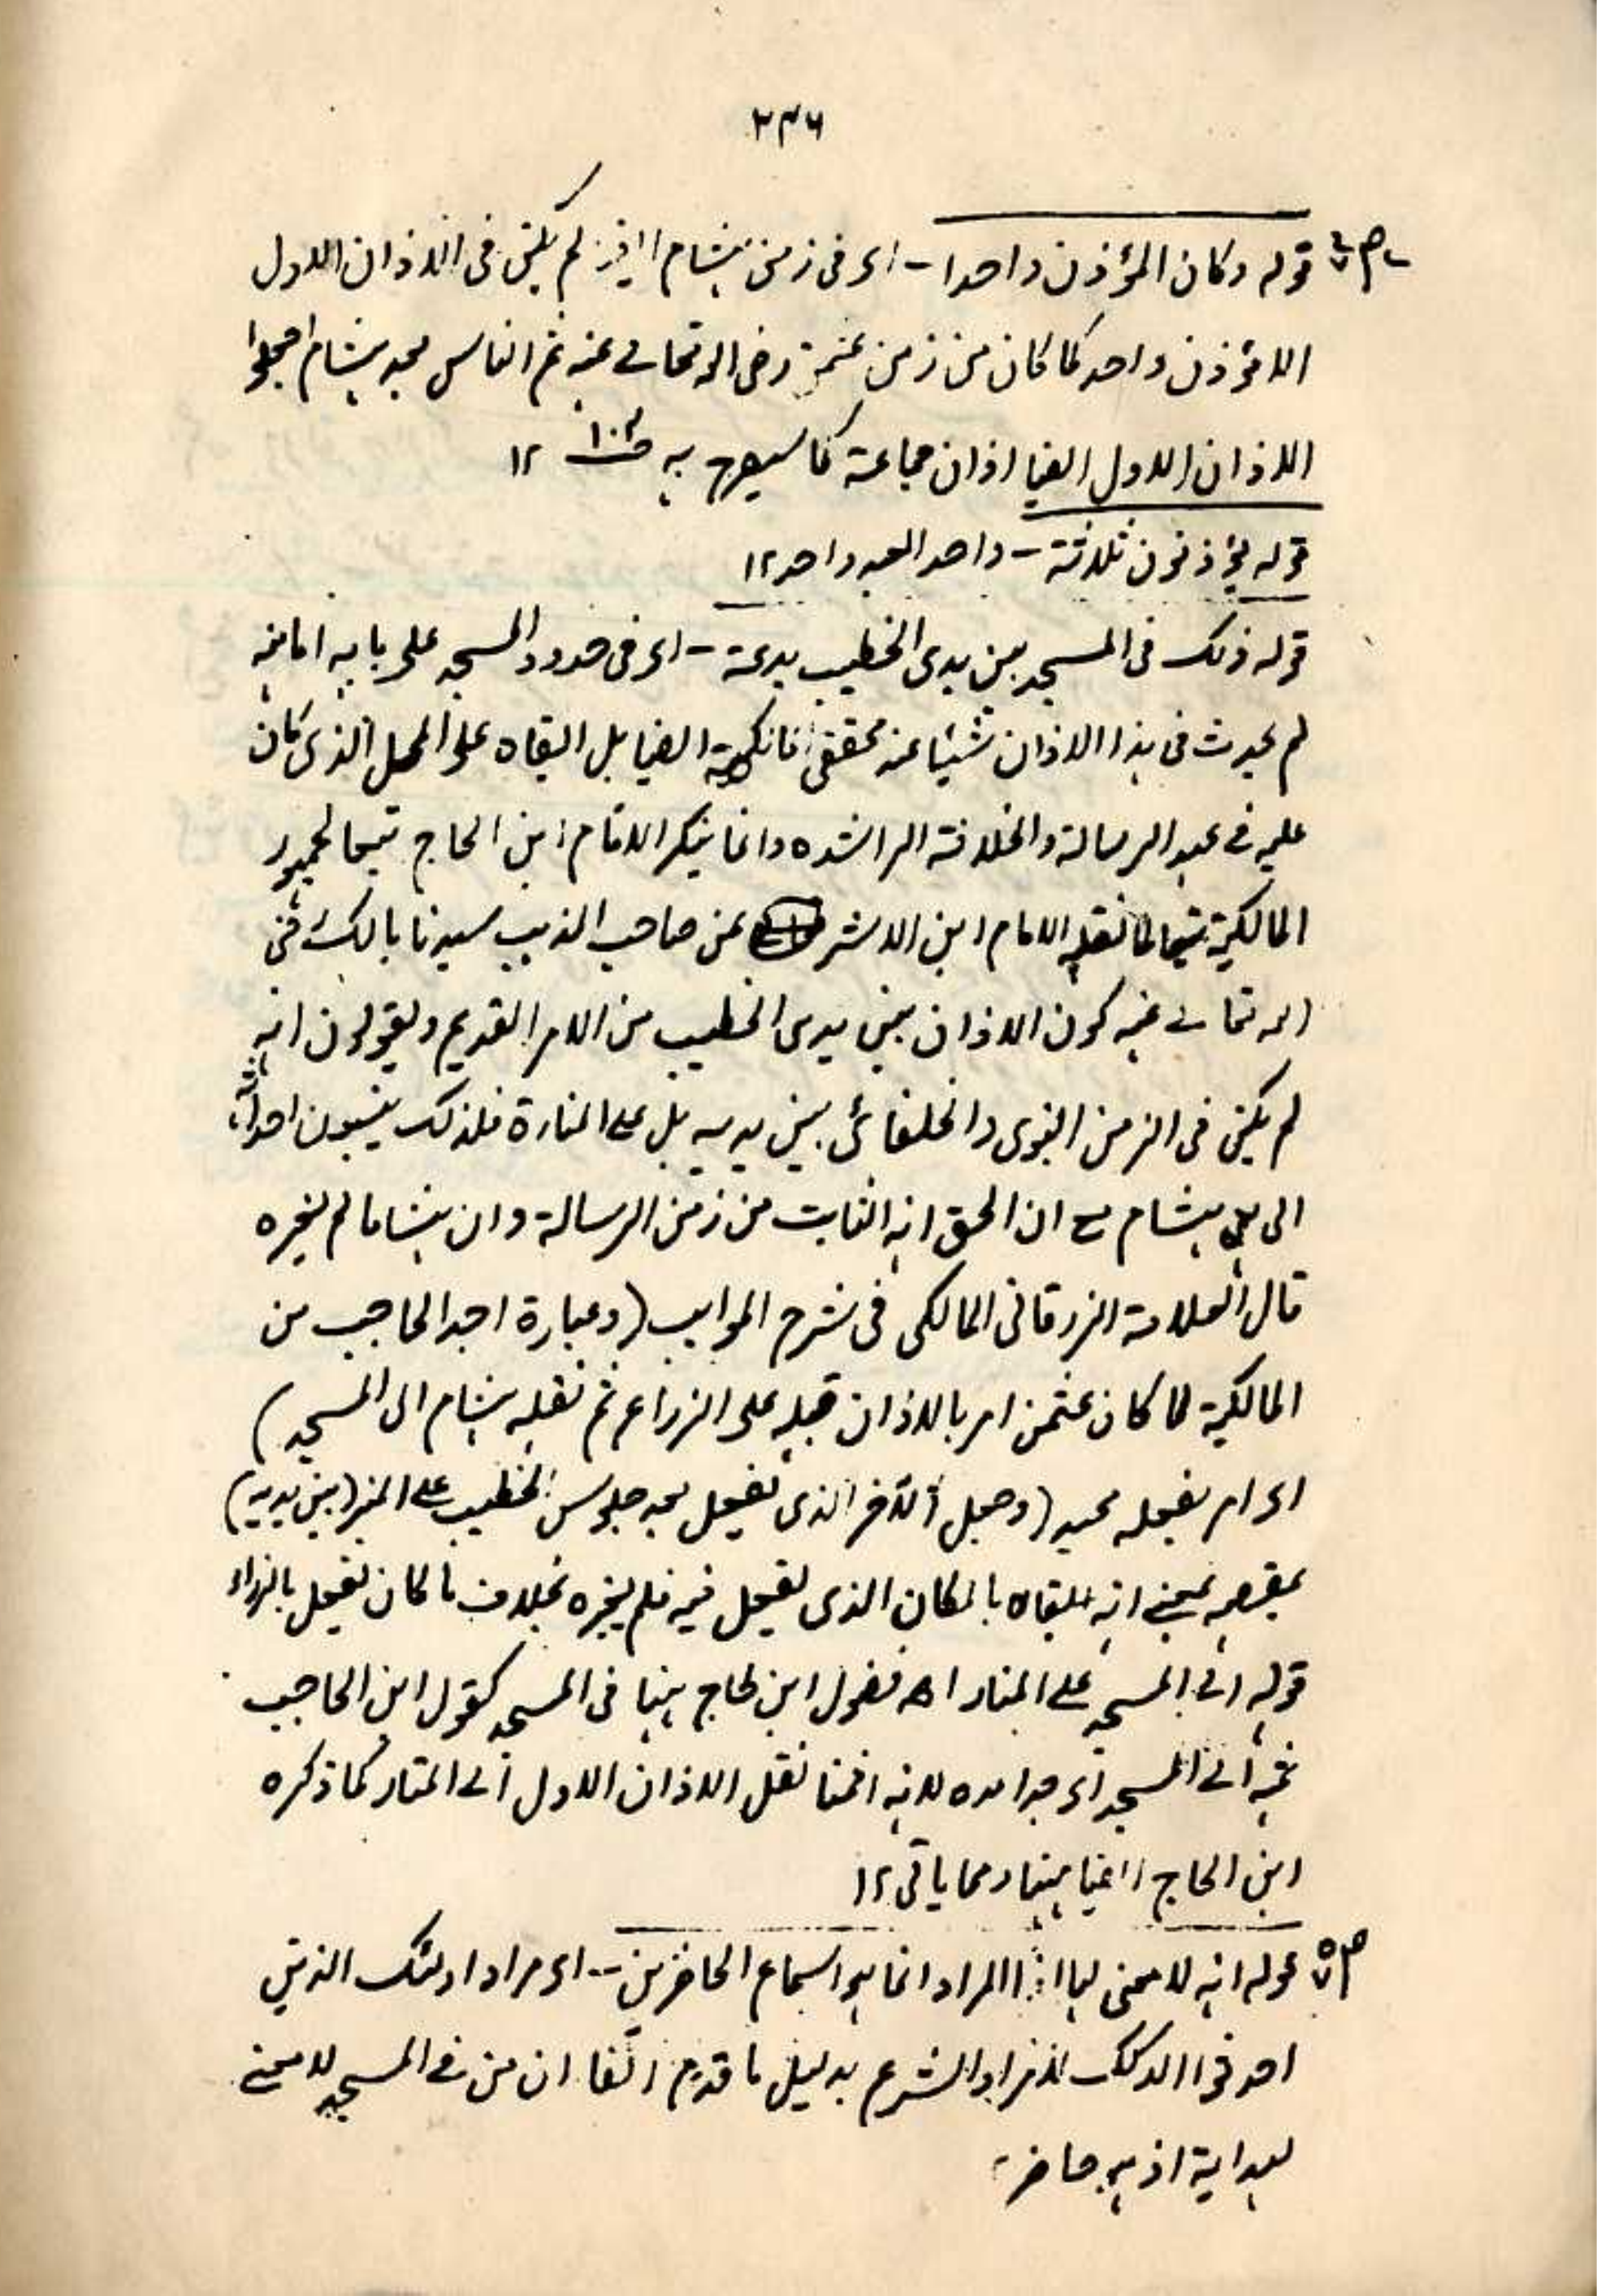 ۲۳۶
قوله وكان المؤذن واحدا – اى فى زمن هشام اذ لم يكن فى الاذان الاول
الا مؤذن واحد كما كان من زمن عثمن رضى الله تعالى عنه ثم الناس بعد هشام جعلوا
الاذان الاول ايضا اذان جماعة كما سيصرح به ص١٠٢ ١٢
قوله يؤذنون ثلاثة – واحدا بعد واحد ١٢
قوله ذلك فى المسجد بين يدى الخطيب بدعة – اى فى حدود المسجد على بابه اما انه
لم يحدث فى هذا الاذان شيئا عند محققى المالكية ايضا بل ابقاه على المحل الذى كان
عليه فى عهد الرسالة والخلافة الراشده وانما ينكر الامام ابن الحاج تبعا لجمهور
المالكية تبعا لما نقله الامام ابن الاشر عن صاحب المذهب سيدنا مالك رضى
الله تعالى عنه كون الاذان بين يدى الخطيب من الامر القديم ويقولون انه
لم يكن فى الزمن النبوى والخلفائى بين يديه بل على المنارة فلذلك ينسبون احداثه
الى هشام مع ان الحق انه الثابت من زمن الرسالة وان هشاما لم يغيره
قال العلامة الزرقانى المالكى فى شرح المواهب (وعبارة ابن الحاجب من
المالكية لما كان عثمن امر بالاذان قبله على الزوراء ثم نقله هشام الى المسجد)
اى امر بفعله فيه (وجعل الآخر الذى يفعل بعد جلوس الخطيب على المنبر (بين يديه)
بمعنى انه ابقاه بالمكان الذى يفعل فيه فلم يغيره بخلاف ما كان يفعل بالزوراء
قوله الى المسجد على المنار اھ فقول ابن الحاج هنا فى المسجد كقول ابن الحاجب
ثمه الى المسجد اى حدوده لانه انما نقل الاذان الاول الى المنار كما ذكره
ابن الحاج ايضا هنا ومما ياتى ١٢
قوله انه لا معنى لها اذ المراد انما هو اسماع الحاضرين – اى مراد اولئك الذين
احدثوا ذلك لا مراد الشرع بدليل ما قدم آنفا ان من فى المسجد لا معنى
لهدايته اذ هو حاضر